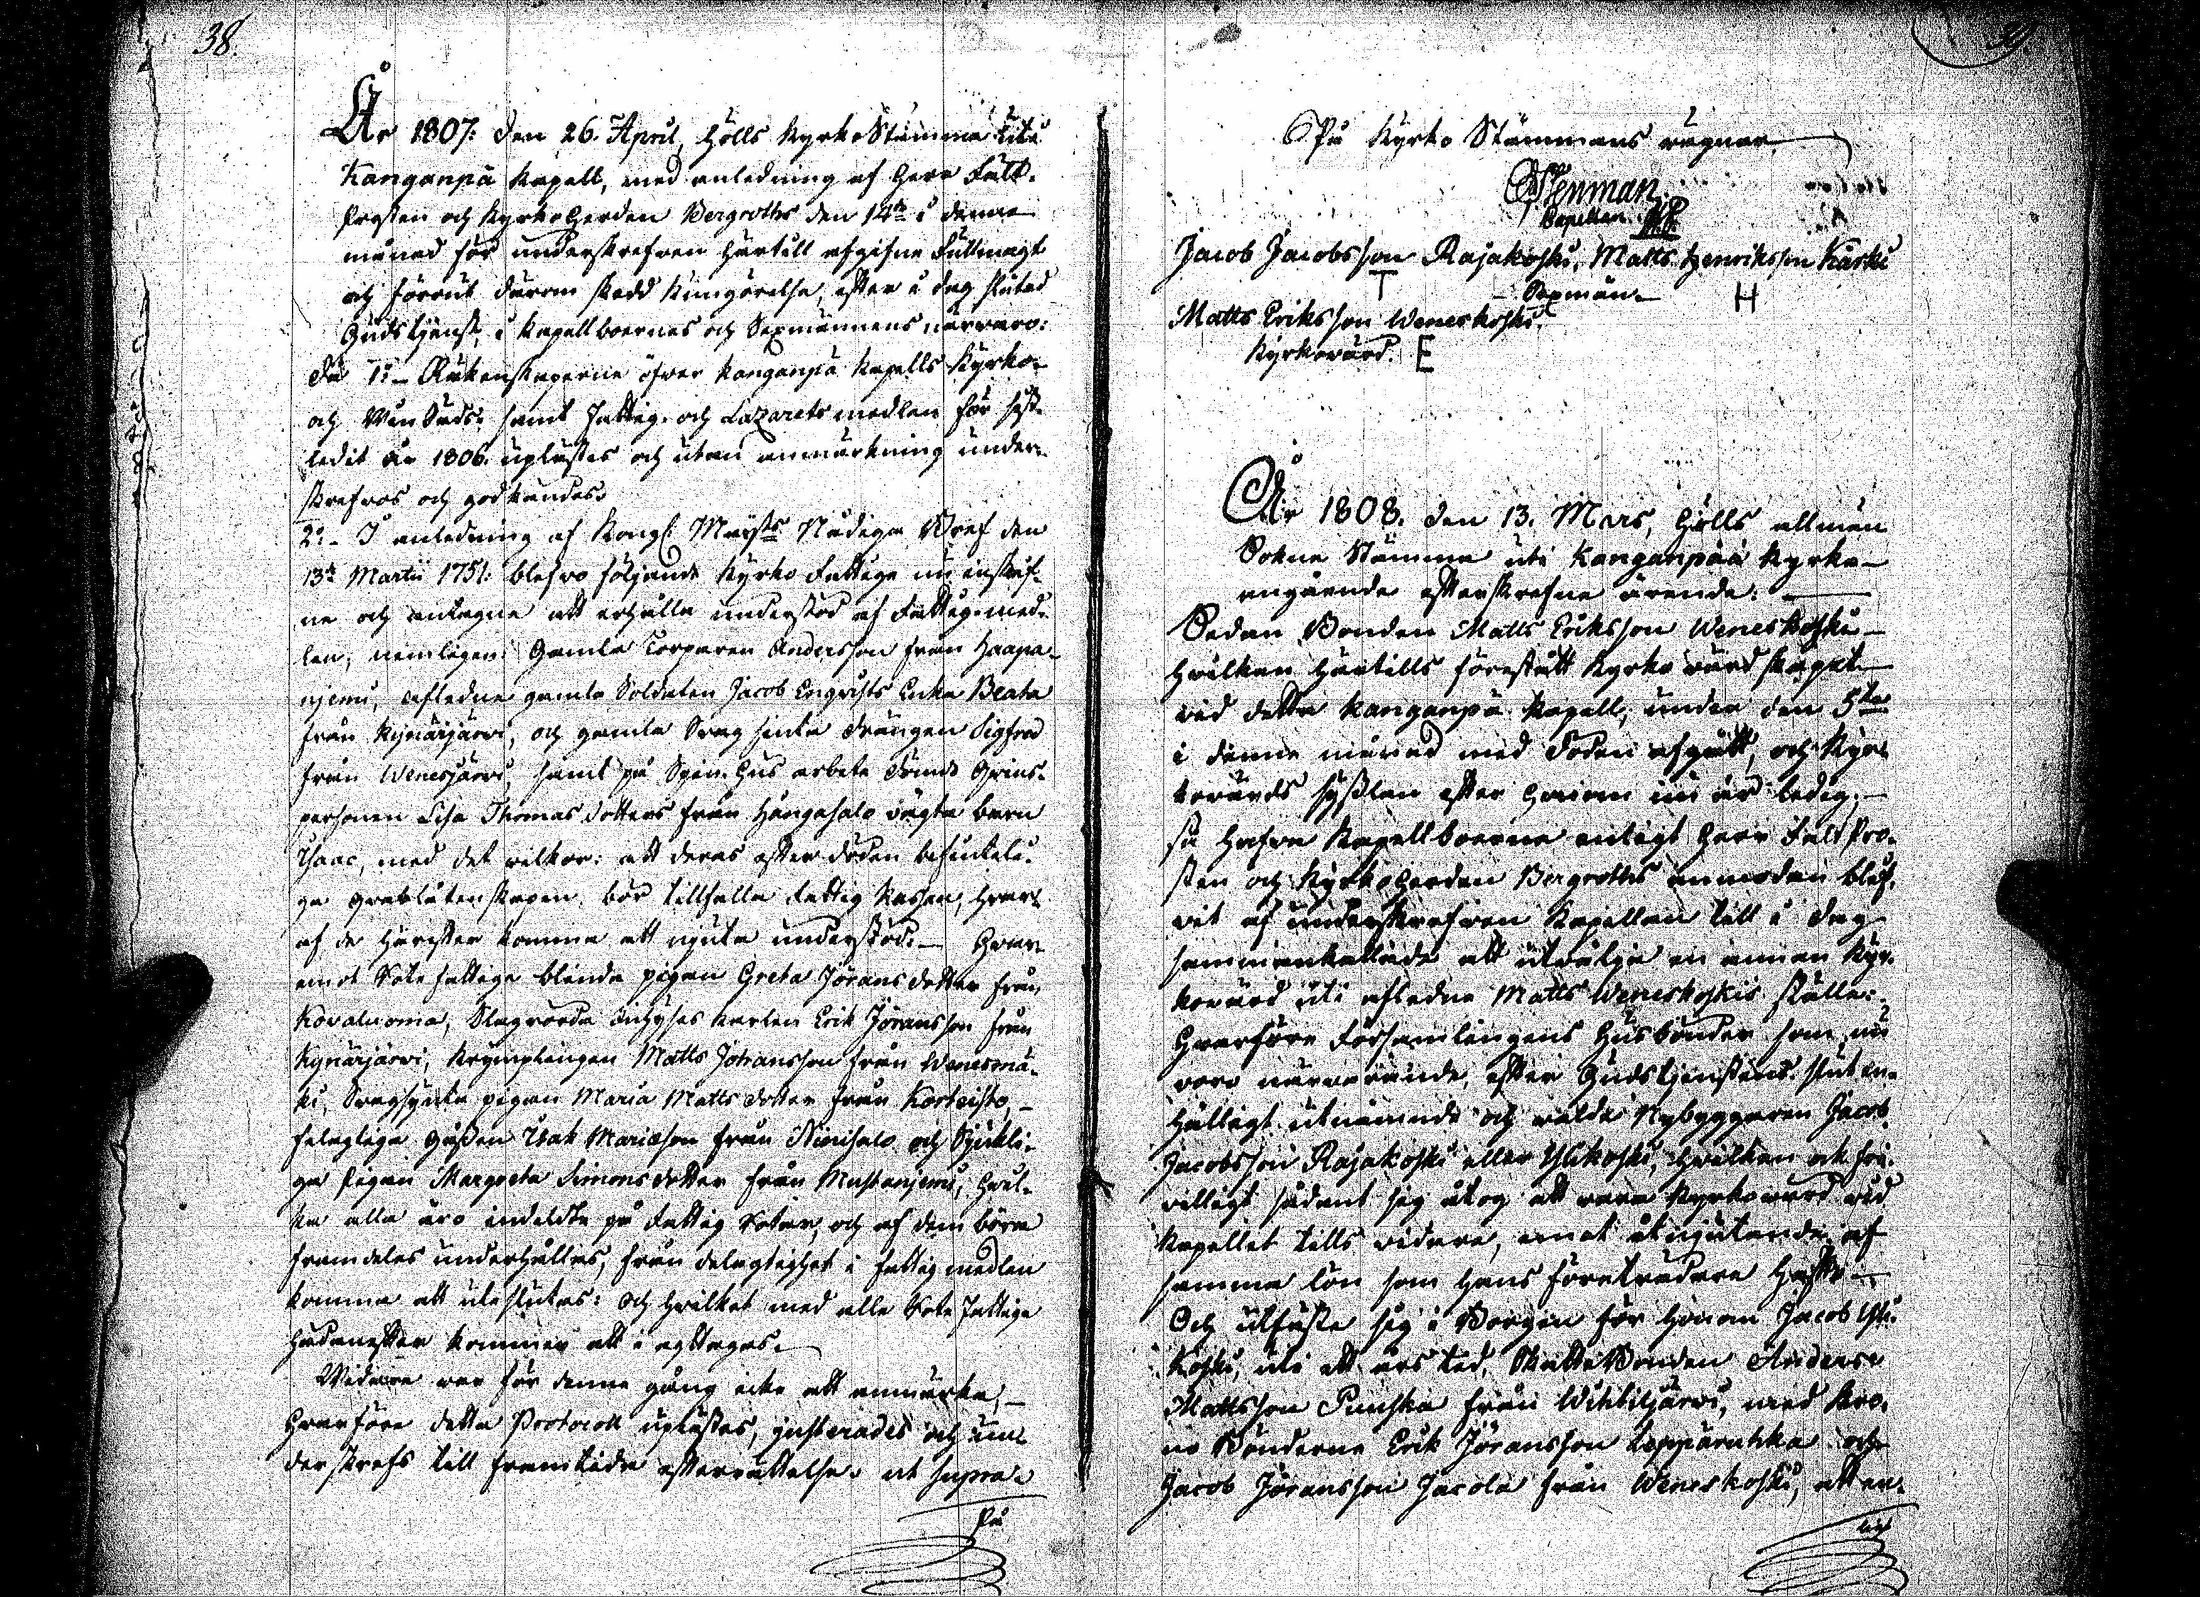 38.
År 1807. den 26. April, hölls Kyrko Stämma uti
Kanganpä Kapell, med anledning af Herr Fält-
Prosten och Kyrkoherden Bergroths den 14de i denne
månad för underskrefven härtill afgifne Fullmagt
och förrut därom skedd Kungörelse, efter i dag slutad
Gudstjenst, i Kapellboernes och Sexmännens närvaro:
Då 1:o Räkenskaperne öfver Kanganpä Kapells Kyrko-
och Win Säds, samt Fattig- och Lazarets medlen för sist-
ledit år 1806. uplästes och utan anmärkning under-
skrefvos och godkändes.
2:o I anledning af Kongl. Maysts Nådiga Bref den
13de Martii 1751. blefvo följande Kyrko Fattige nu inskrif-
ne och antagne att erhålla understöd af Fattig-med-
len, nemligen: Gamla Torparen Andersson från Haapa-
njemi, afledne gamla Soldaten Jacob Engvists Enka Beata
från Kynärjärvi, och gamla Svagsinta Drängen Sigfred
från Wenesjärvi, samt på Spin-Hus arbete dömde
personen Lisa Thomas dotters från Hångasalo oägta barn
Isaac, med det vilkor: att deras efter döden befinteli-
ga qvarlåtenskapen, bör tillfalla Fattig Kassan, hvar-
af de härefter komma att njuta understöd. Hvar-
emot Rote fattige blinda pigan Greta Jörans dotter från
Kovaluoma, Slagrörda Inhyses karlen Erik Jöransson från
Kynärjärvi, Krymplingen Matts Johansson från Wenesmä-
ki, Svagsynta pigan Maria Matts dotter från Korteisto,
felagtiga Gossen Isak Mariæson från Niinisalo och Sjukli-
ga Pigan Margreta Simonsdotter från Mustanjemi, hvil-
ka alla äro indeldte på Fattig Rotar, och af dem böra
framdeles underhållas, från delagtighet i fattig medlen
komma att uteslutas: och hvilket med alla Rote Fattige
hädanefter kommer att i agttagas.
Widare var för denne gång icke att anmärka,
Hvarföre detta Protocoll uplästes, justerades och un-
derskrefs till framtida efterrättelse. ut supra.
På
39.
På Kyrko Stämmans vägnar
Stenman
Capellan
Jacob Jacobsson Rajakoski. Matts Henriksson Karki
T Sexmän H
Matts Eriksson Weneskoski.
Kyrkovärd. E
År 1808. den 13. Mars, hölls allmän
Sokne Stämma uti Kanganpää Kyrka
angående efterskrefne ärende:
Sedan Bonden Matts Eriksson Weneskoski
hvilken härtills förestått Kyrkovärdskapet
vid detta Kanganpä Kapell, under den 5te
i denne månad med Döden afgått, och Kyr-
kovärds Syßlan efter honom nu är ledig;
så hafva Kapellboerne enligt Herr Fält Pro-
sten och Kyrkoherden Bergroths anmodan blif-
vit af underskrefven Kapellan till i dag
sammankallade att utvälja en annan Kyr-
kovärd uti afledne Matts Weneskoskis ställe:
Hvarföre Församlingens Husbönder som nu
voro närvarande, efter Gudstjenstens slut en-
hälligt utnämnde och valde Nybyggaren Jacob
Jacobsson Rajakoski eller Ylikoski, hvilken ock fri-
villigt sådant sig åtog att vara Kyrkovärd vid
Kapellet tills vidare, emot åtnjutande af
samma lön som hans företrädare haft.
Och utfäste sig i Borgen för honom Jacob Yli-
koski, uti ett års tid, Skatte Bonden Anders
Mattsson Punska från Wihtiljärvi, med Kro-
no Bönderne Erik Jöransson Leppäruhka och
Jacob Jöransson Jacola från Weneskoski, att an-